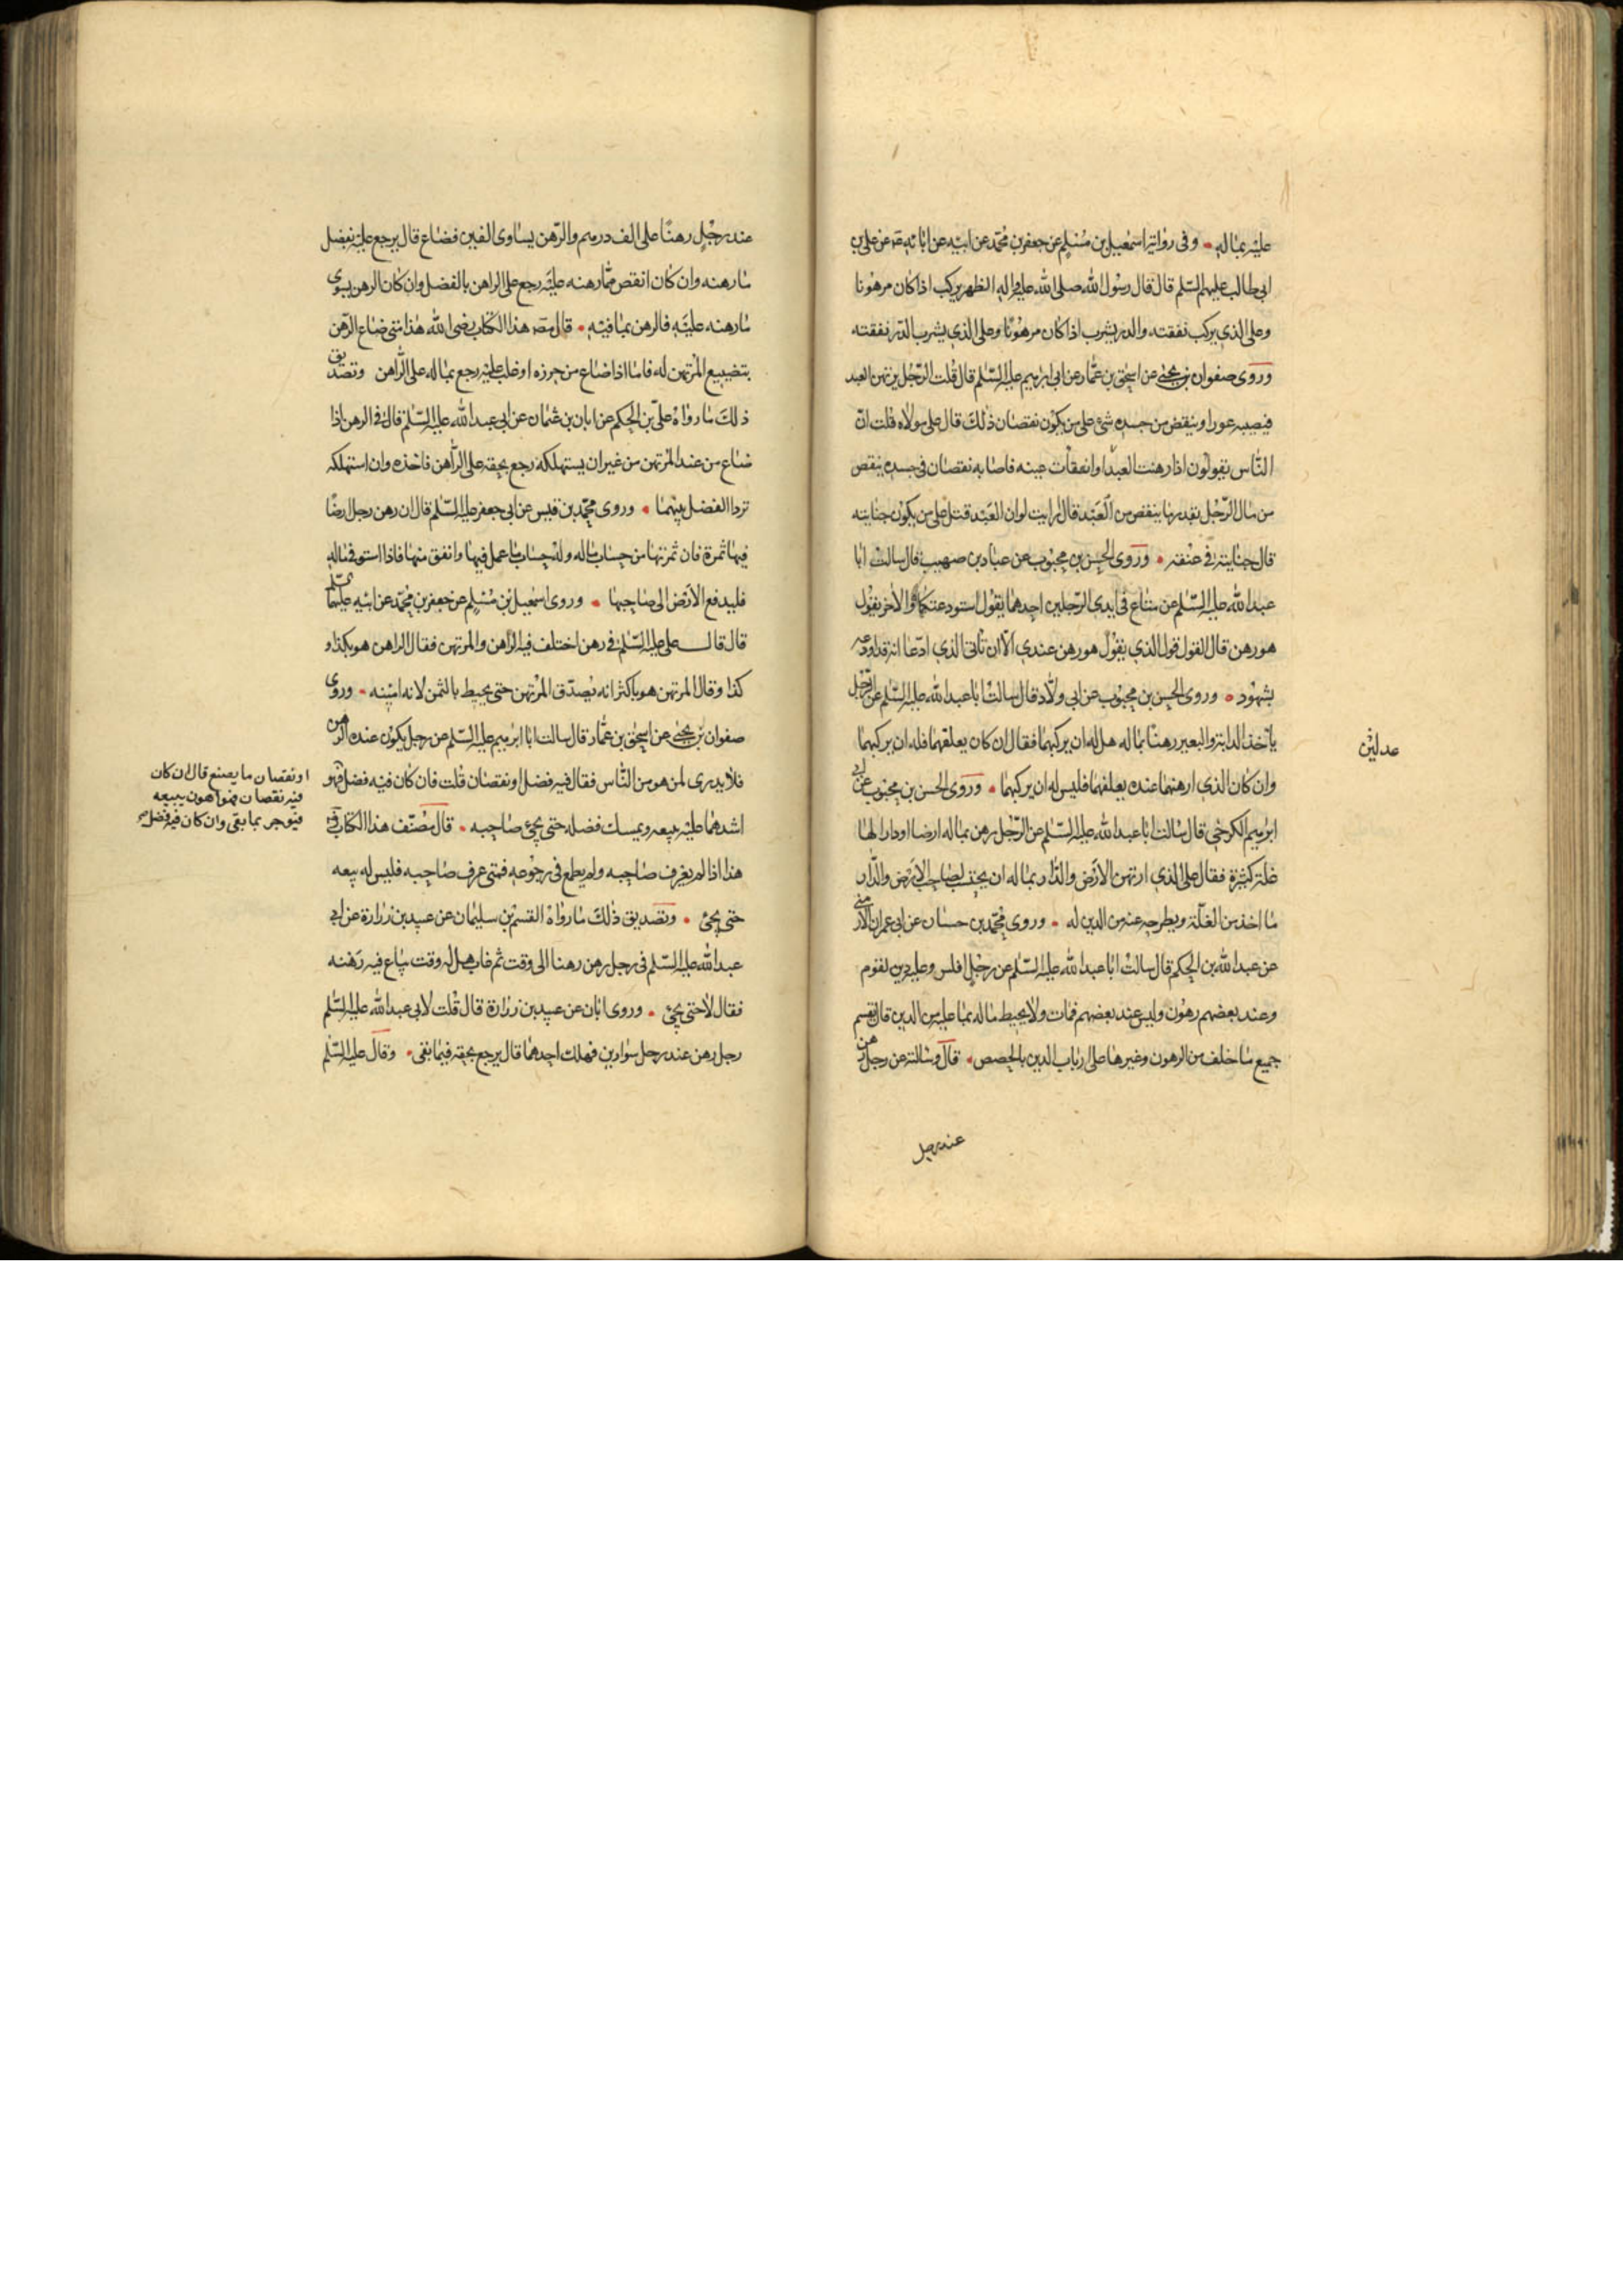 عليه بماله وفى رواية اسمعيل بن مسلم عن جعفر بن محمد عن ابيه عن ابائه عن على بن
ابى طالب عليهم السلم قال قال رسول الله صلى الله عليه واله الظهر يركب اذا كان مرهونا
وعلى الذى يركب نفقته والدر يشرب اذا كان مرهونا وعلى الذى يشرب الدر نفقته
وروى صفوان بن يحيى عن اسحق بن عمار عن ابى ابرهيم عليه السلم قال قلت الرجل يرتهن العبد
فيصيبه عور او ينقص من جسده شئ على من يكون نقصان ذلك قال على مولاه قلت ان
الناس يقولون اذا رهنت العبد او انفقأت عينه فاصابه نقصان فى جسده ينقص
من مال الرجل بقدر ما ينقص من العبد قال ارايت لو ان العبد قتل على من يكون جنايته
قال جنايته فى عنقه وروى الحسن بن محبوب عن عباد بن صهيب قال سالت ابا
عبد الله عليه السلم عن متاع فى ايدى الرجلين احدهما يقول استودعتكاه والاخر يقول
هو رهن قال القول قول الذى يقول هو رهن عندى الا ان تأتى الذى ادعا انه قد اودعه
بشهود وروى الحسن بن محبوب عن ابى ولاد قال سالت ابا عبد الله عليه السلم عن الرجل
يأخذ الدابة والبعير رهنا بماله هل له ان يركبهما فقال ان كان يعلفهما فله ان يركبهما
وان كان الذى ارهنهما عنده يعلفهما فليس له ان يركبهما وروى الحسن بن محبوب عن
ابرهيم الكرخى قال سالت ابا عبد الله عليه السلم عن الرجل رهن بماله ارضا او دارا لها
غلة كثيرة فقال على الذى ارتهن الارض والدار بماله ان يحتسب لصاحب الارض والدار
ما اخذ من الغلة ويطرحه عنه من الدين له وروى محمد بن حسان عن ابى عمران الارمنى
عن عبد الله بن الحكم قال سالت ابا عبد الله عليه السلم عن رجل افلس وعليه دين لقوم
وعند بعضهم رهون وليس عند بعضهم فمات ولا يحيط ماله بما عليه من الدين قال يقسم
جميع ما خلف من الرهون وغيرها على ارباب الدين بالحصص قال وسالته عن رجل رهن
عند رجل
عدلين
عند رجل رهنا على الف درهم والرهن يساوى الفين فضاع قال يرجع عليه بفضل
ما رهنه وان كان انقص مما رهنه عليه رجع على الراهن بالفضل وان كان الرهن يسوى
ما رهنه عليه فالرهن بما فيه قال مصنف هذا الكتاب رضى الله هذا متى ضاع الرهن
بتضييع المرتهن له فاما اذا ضاع من حرزه او غلب عليه رجع بماله على الراهن وتصديق
ذلك ما رواه على بن الحكم عن ابان بن عثمان عن ابى عبد الله عليه السلم قال فى الرهن اذا
ضاع من عند المرتهن من غير ان يستهلكه رجع بحقه على الراهن فاخذه وان استهلكه
تردا الفضل بينهما وروى محمد بن قيس عن ابى جعفر عليه السلم قال ان رهن رجل ارضا
فيها ثمرة فان ثمرتها من حساب ماله وله حساب ما عمل فيها وانفق منها فاذا استوفى ماله
فليدفع الارض الى صاحبها وروى اسمعيل بن مسلم عن جعفر بن محمد عن ابيه عليهما السلم
قال قال على عليه السلم فى رهن اختلف فيه الراهن والمرتهن فقال الراهن هو بكذا و
كذا وقال المرتهن هو باكثر انه يصدق المرتهن حتى يحيط بالثمن لانه امينه وروى
صفوان بن يحيى عن اسحق بن عمار قال سالت ابا ابرهيم عليه السلم عن رجل يكون عنده الرهن
فلا يدرى لمن هو من الناس فقال فيه فضل او نقصان قلت فان كان فيه فضل فهو
اشدهما عليه يبيعه ويمسك فضله حتى يجئ صاحبه قال مصنف هذا الكتاب
هذا اذا لم يعرف صاحبه ولم يطمع فى رجوعه فمتى عرف صاحبه فليس له بيعه
حتى يجئ وتصديق ذلك ما رواه القسم بن سليمان عن عبيد بن زرارة عن ابى
عبد الله عليه السلم فى رجل رهن رهنا الى وقت ثم غاب هل له وقت يباع فيه رهنه
فقال لا حتى يجئ وروى ابان عن عبيد بن زرارة قال قلت لابى عبد الله عليه السلم
رجل رهن عند رجل سوارين فهلك احدهما قال يرجع بحقه فيما بقى وقال عليه السلم
او نقصان ما يصنع قال ان كان
فيه نقصان فهو اهون يبيعه
فيوجر بما بقى وان كان فيه فضل